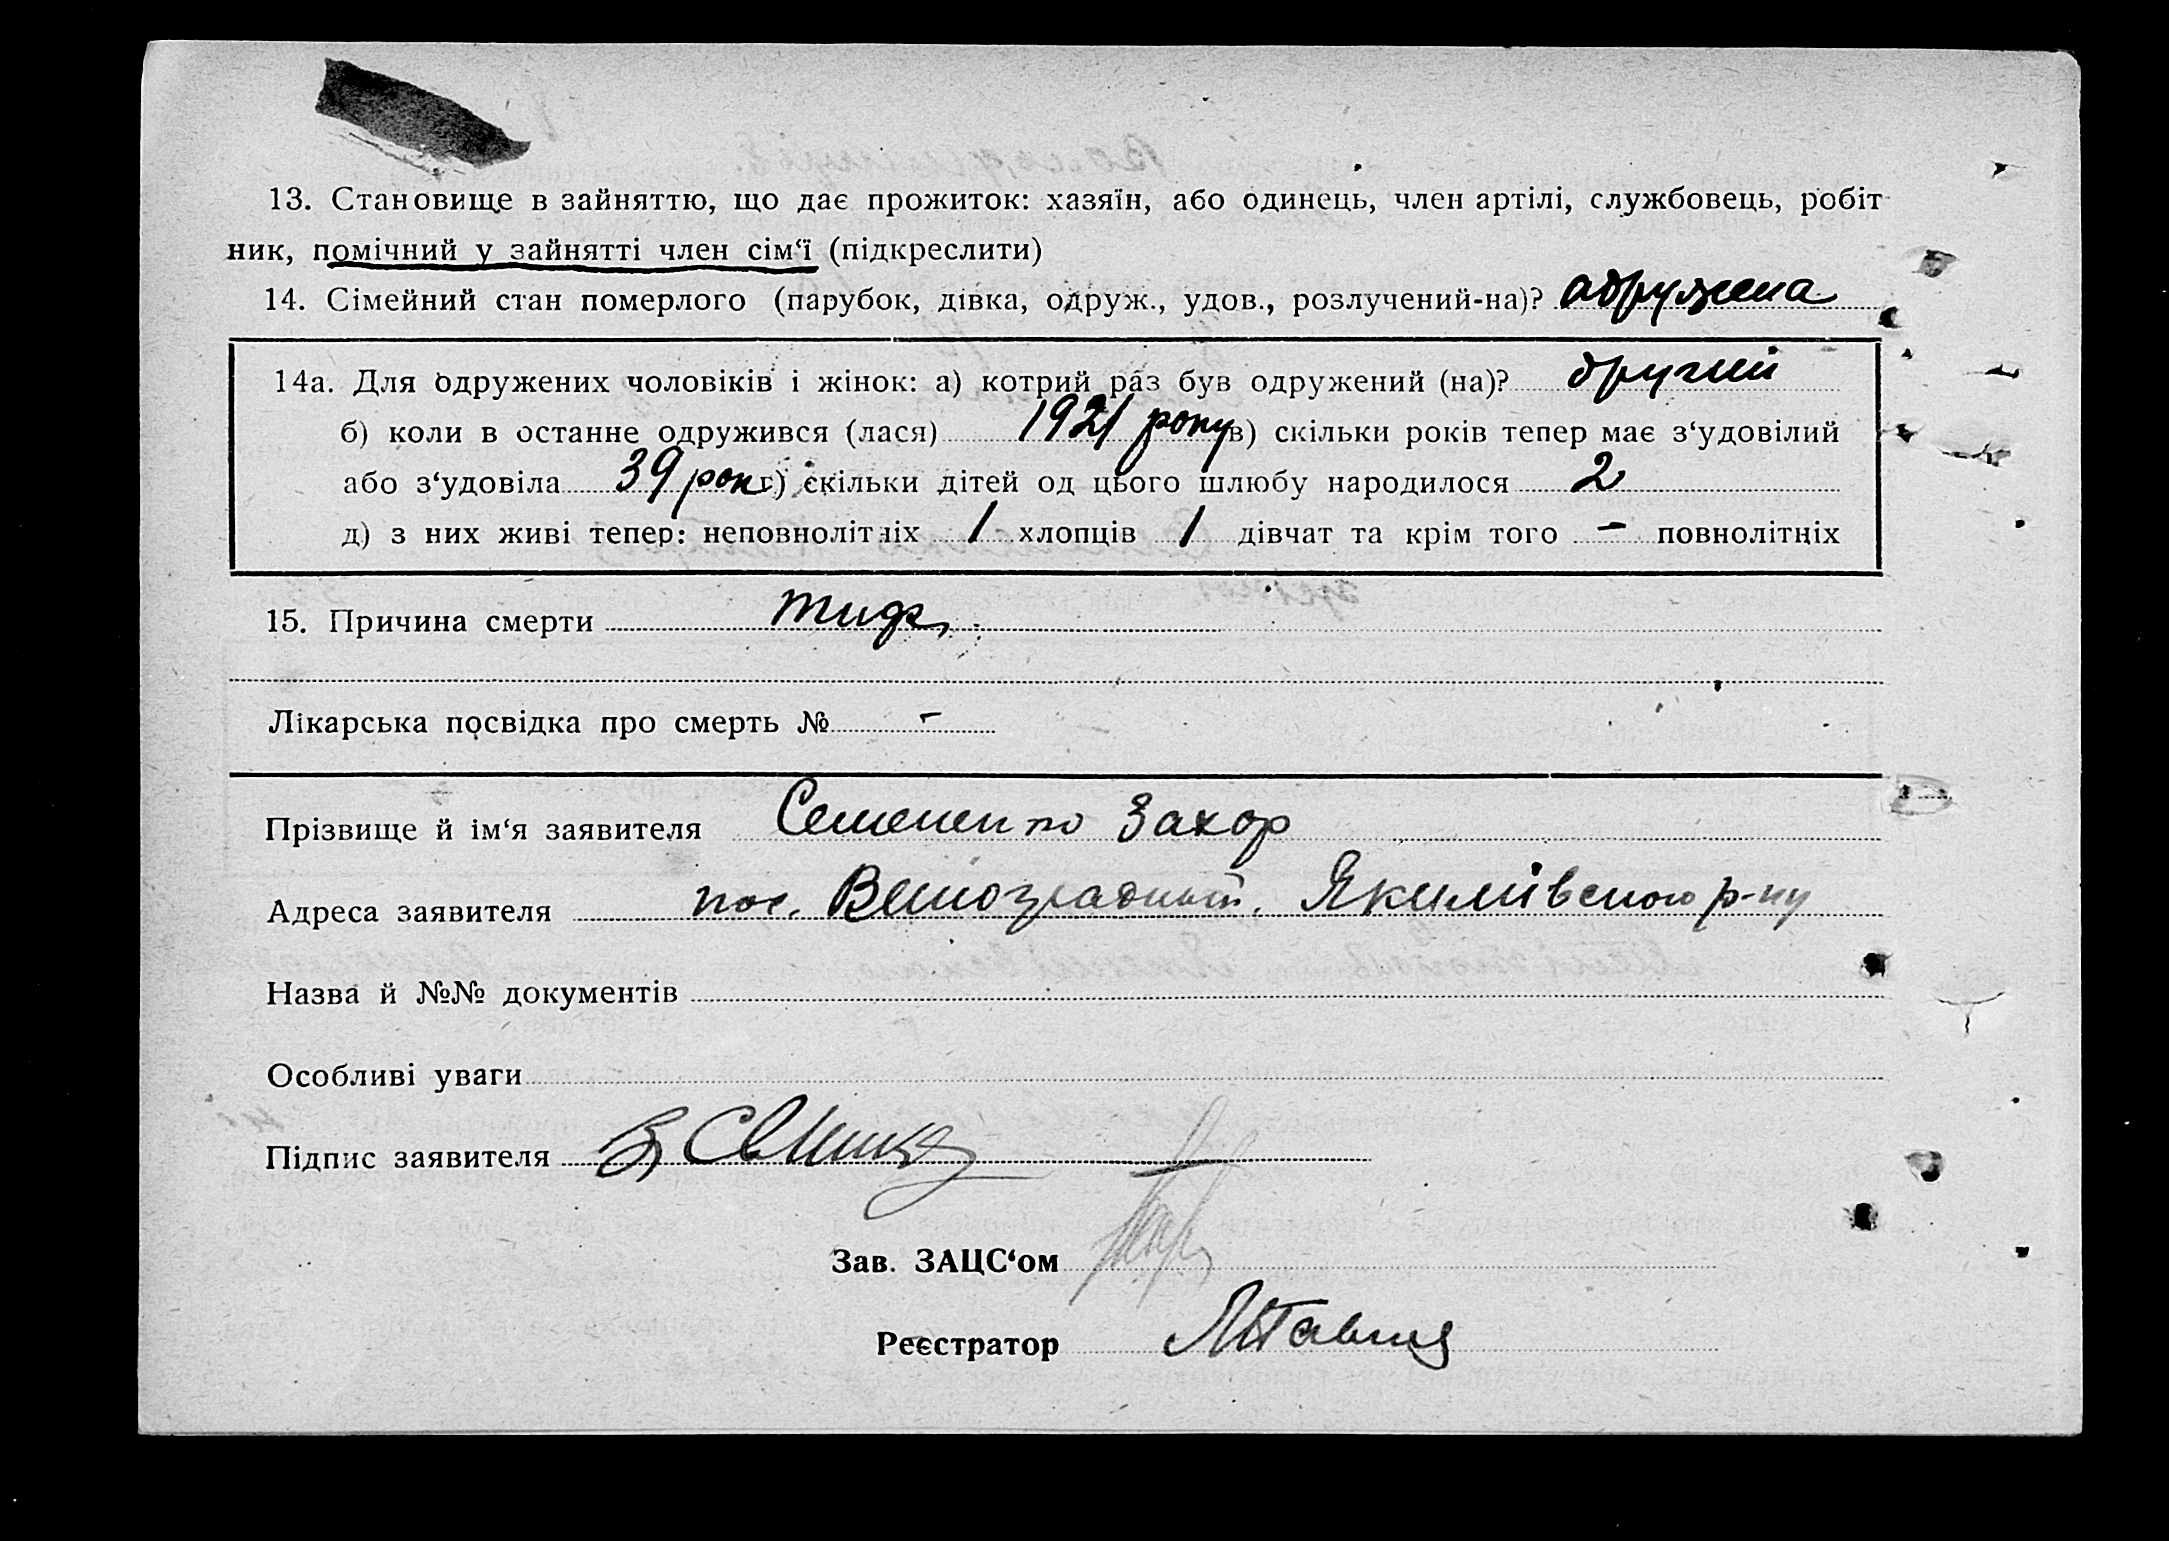 13. Становище в зайняттю, що дає прожиток: хазяїн, або одинець, член артілі, службовець, робіт-
ник, помічний у зайнятті член сім‘ї (підкреслити)
14. Сімейний стан померлого (парубок, дівка, одруж., удов., розлучений-на)? одружена
14а. Для одружених чоловіків і жінок: а) котрий раз був одружений (на)? другий
б) коли в останнє одружився (лася) 1921 року в) скільки років тепер має з‘удовілий
або з‘удовіла 39 рок г) скільки дітей од цього шлюбу народилося 2
д) з них живі тепер: неповнолітніх 1 хлопців 1 дівчат та крім того – повнолітніх
15. Причина смерти тиф
Лікарська посвідка про смерть № –
Прізвище й ім‘я заявителя Семененко Захор
Адреса заявителя пос. Виноградний. Якимівського р-ну
Назва й №№ документів
Особливі уваги
Підпис заявителя
Зав. ЗАЦС‘ом
Реєстратор